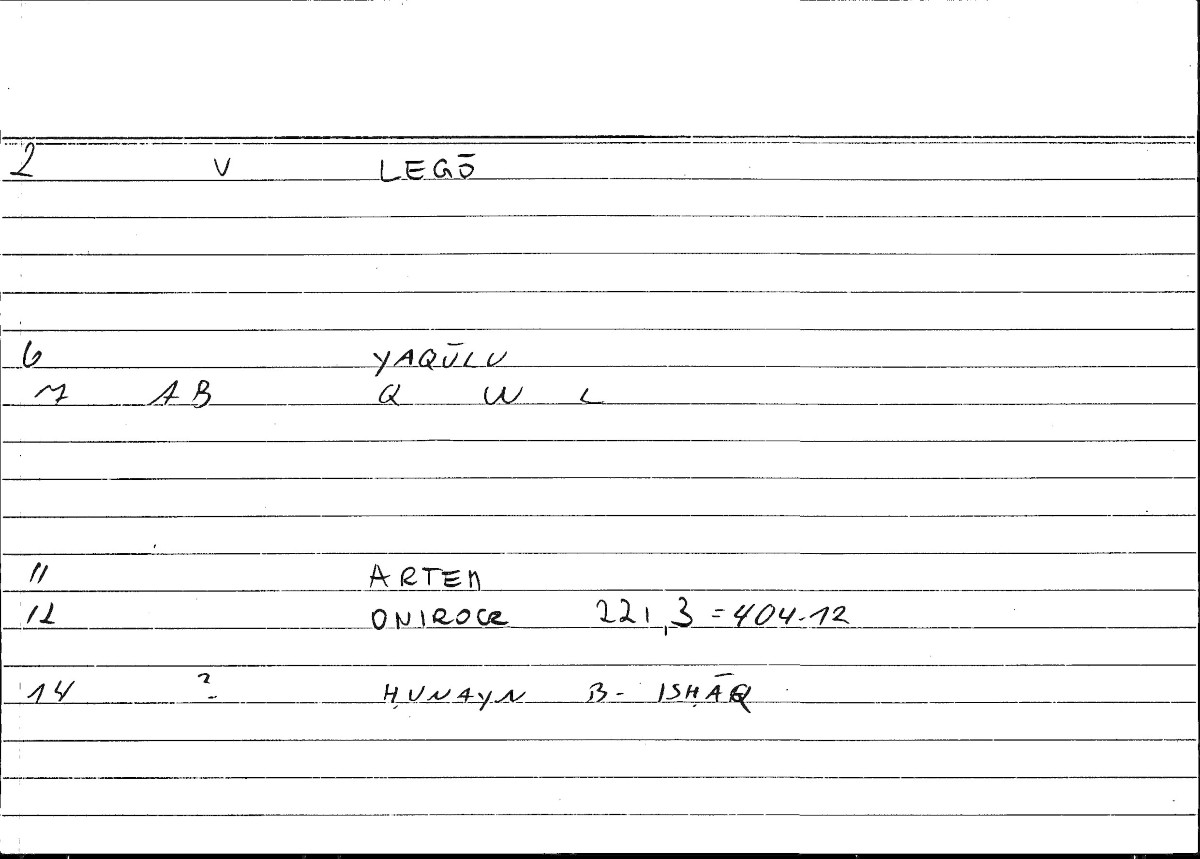 2 V LEGŌ
6 YAQŪLU
7 AB Q W L
11 ARTEM
12 ONIROCR 221,3=404.12
14 ? ḤUNAYN B- ISḤĀQ